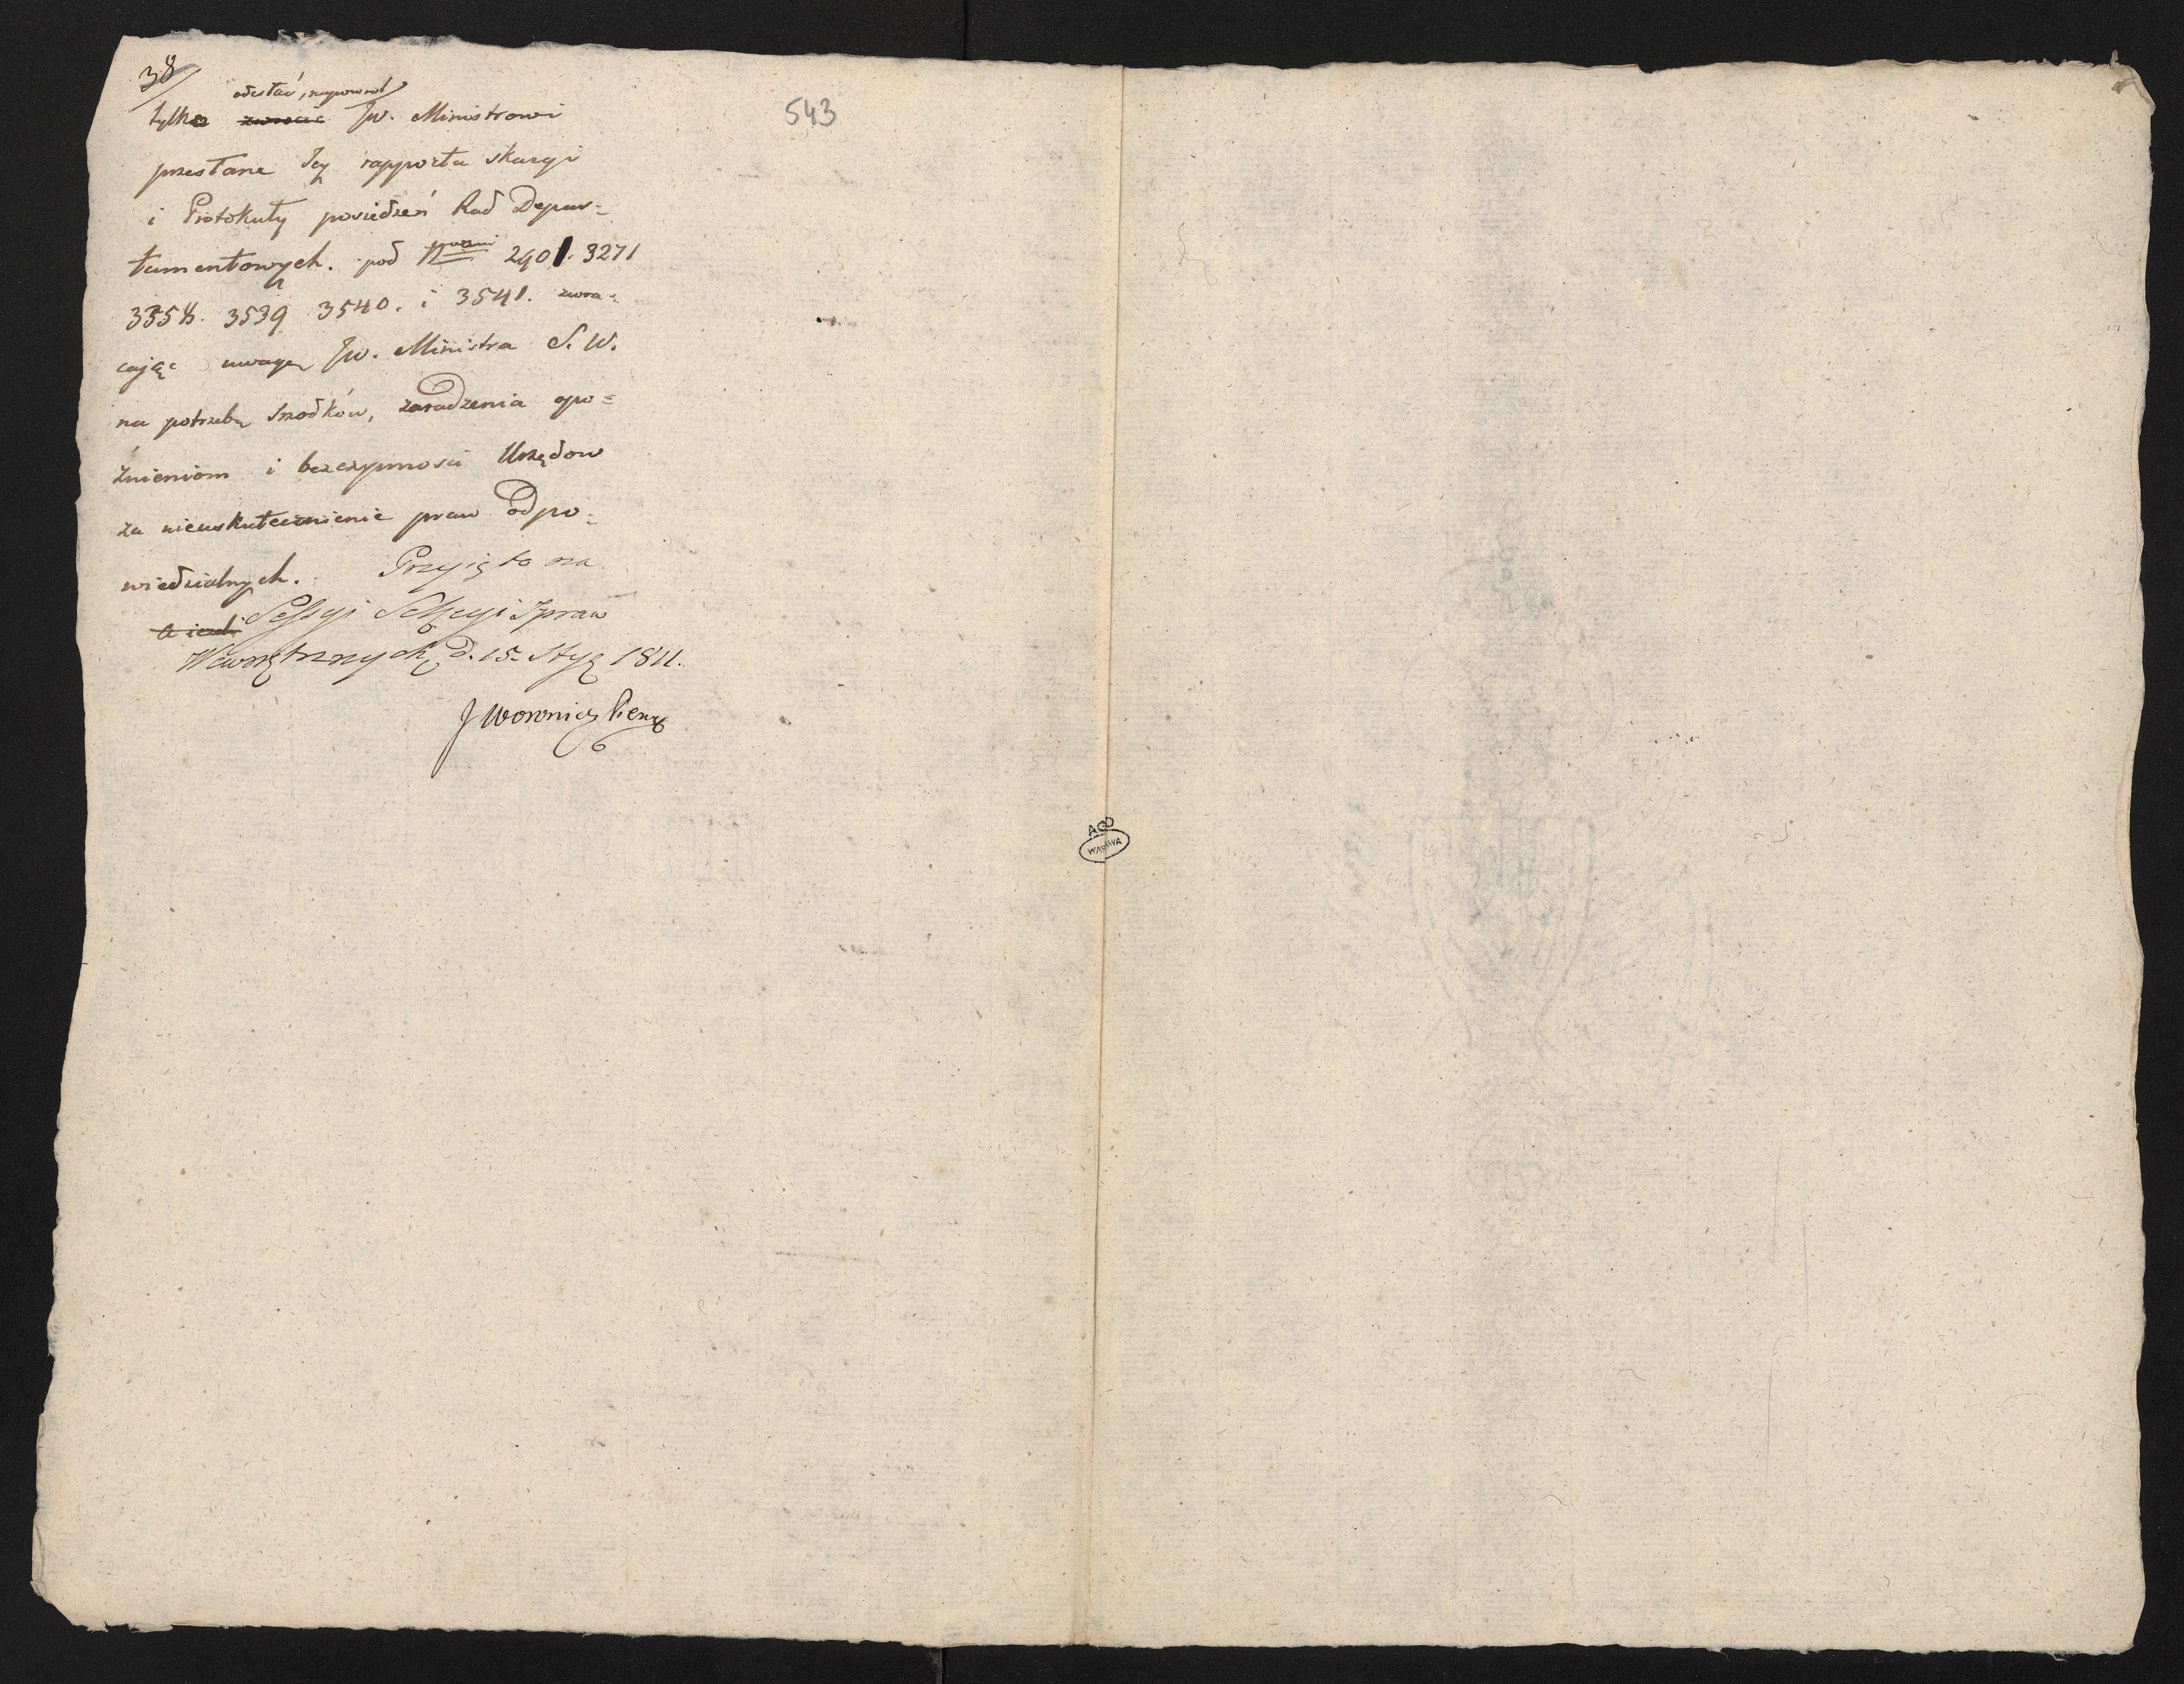 38/
543
odesłać, napowrot
tylko zwrocic Jw. Ministrowi
przesłane Jey rapporta skargi
i Protokuły posiedzeń Rad Depar=
tamentowych. pod Nrami 2901. 3271
3358. 3539 3540. i 3541. zwra=
cając uwagę Jw. Ministra S. W.
na potrzebę srzodków, zaradzenia opo=
źnieniom i bezczynnosci Urzędow
za nieuskutecznienie praw odpo=
wiedzialnych. Przyięto na
a iezeli Sessyi Sekcyi Spraw
Wewnętrznych d. 15. Stycz 1811.
J Woronicz Prezy
AGD
WARSZAWA